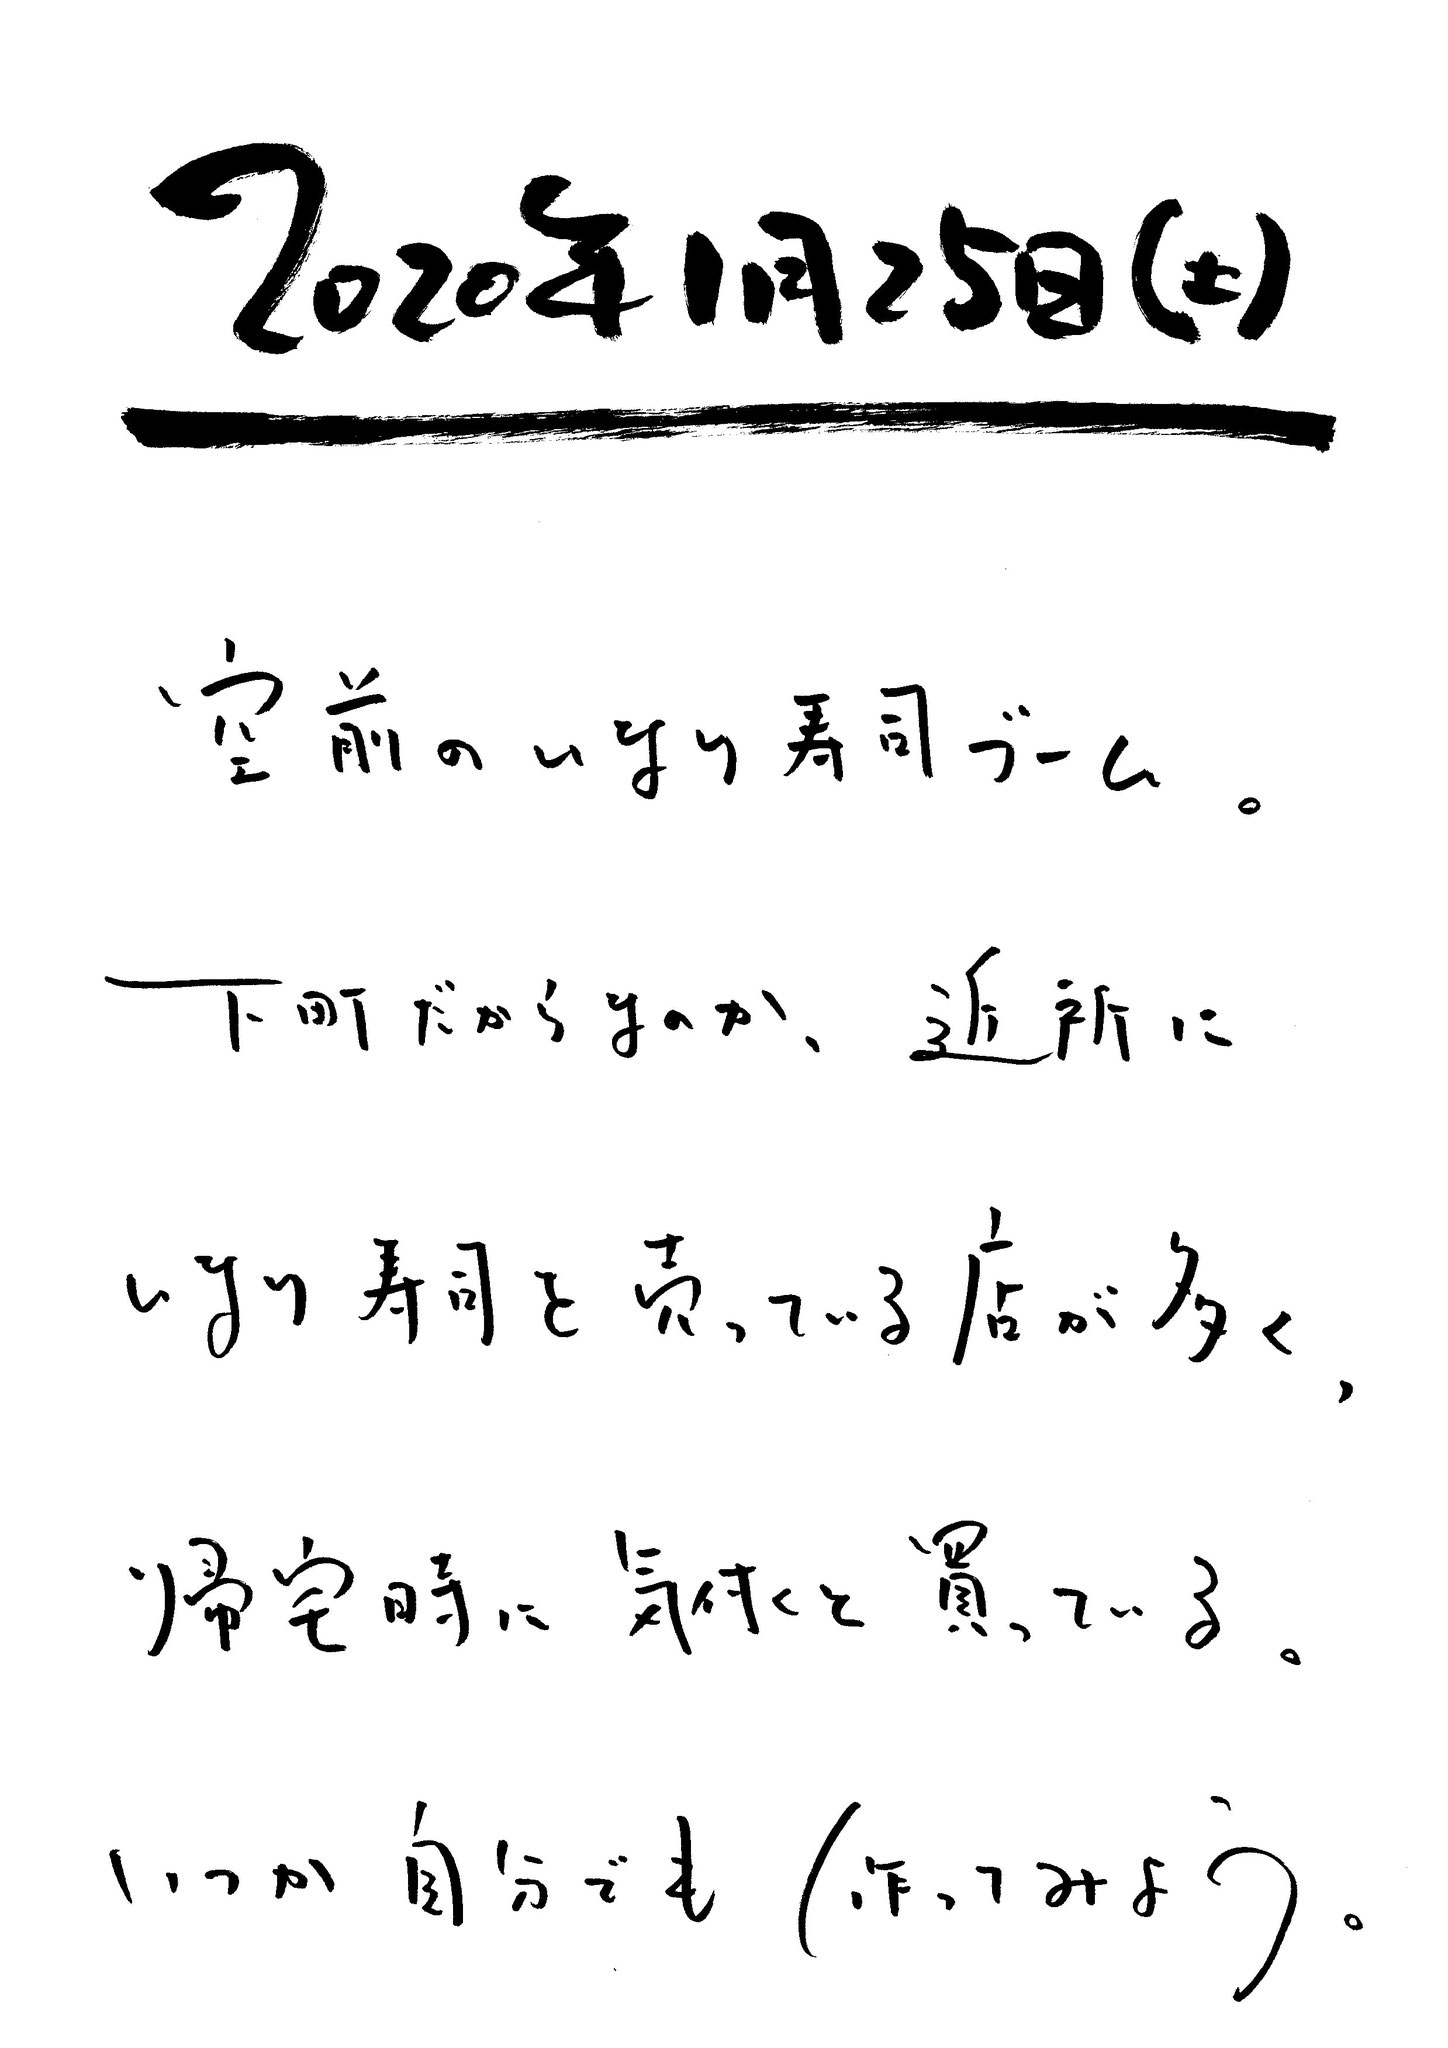 2020年1月25日(土)
空前のいなり寿司ブーム。
下町だからなのか、近所に
いなり寿司を売っている店が多く、
帰宅時に気付くと買っている。
いつか自分でも作ってみよう。